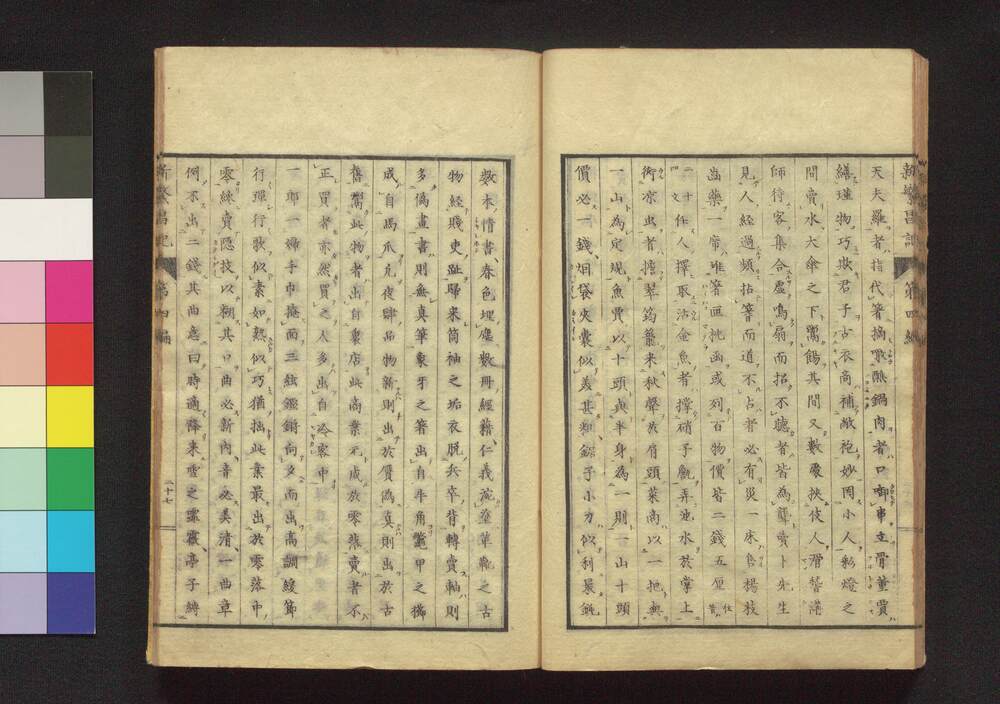 天夫羅者指代箸摘噉醮鍋肉者口啣串立骨董買
繕瑾物巧欺君子古衣商補敝袍妙罔小人彩燈之
間賣水大傘之下鬻餳其間又數處挾伎人滑稽講
師待客集合虚鳴扇而招不聽者皆為聾賣卜先生
見人經過頻拈箸而道不占者必有災一床售楊枝
齒藥一帘唯箸画扎函或列百物價皆二錢五厘
二十
四文
任人擇取沽金魚者撑硝子瓶弄池水於掌上
衒凉虫者擔翠筠籠来秋聲於肩頭菜商以一把與
一山為定規魚賈以十頭與半身為一則一山十頭
價必一錢烟袋夾囊似美甚粗鎌子小刀似利最鈍
數本情書春色埋塵數冊經籍仁義泥塗革靴之古
物經賤吏趾歸来筒袖之垢衣脱兵卒背轉賣軸則
多偽畫書則無真筆象牙之箸出自牛角鼈甲之櫛
成自馬爪凡夜肆品物新則出於贗偽真則出於古
舊鬻此物者出自裏店此商業元成於零落賣者不
正買者亦然買之人多出自冷家中
一郎一婦手巾掩面三絃鏗鏘向夕而出高調緩節
行彈行歌似素如熟似巧猶拙此業最出於零落中
零絲賣隱技以糊其口曲必新内音必美清一曲章
例不出二錢其曲意曰時適降来雪之
亭子縛
新繁昌記
第四編
二十七
新繁昌記
第四編